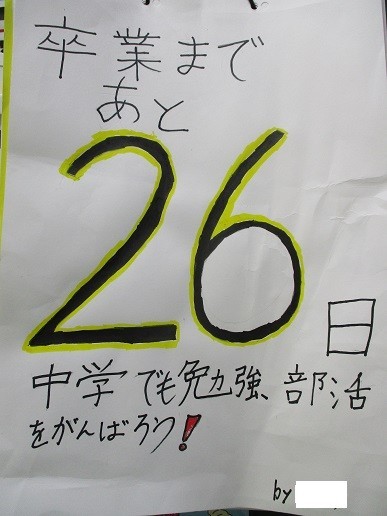 卒業まで
あと
26日
中学でも勉強、部活
をがんばろう!
by